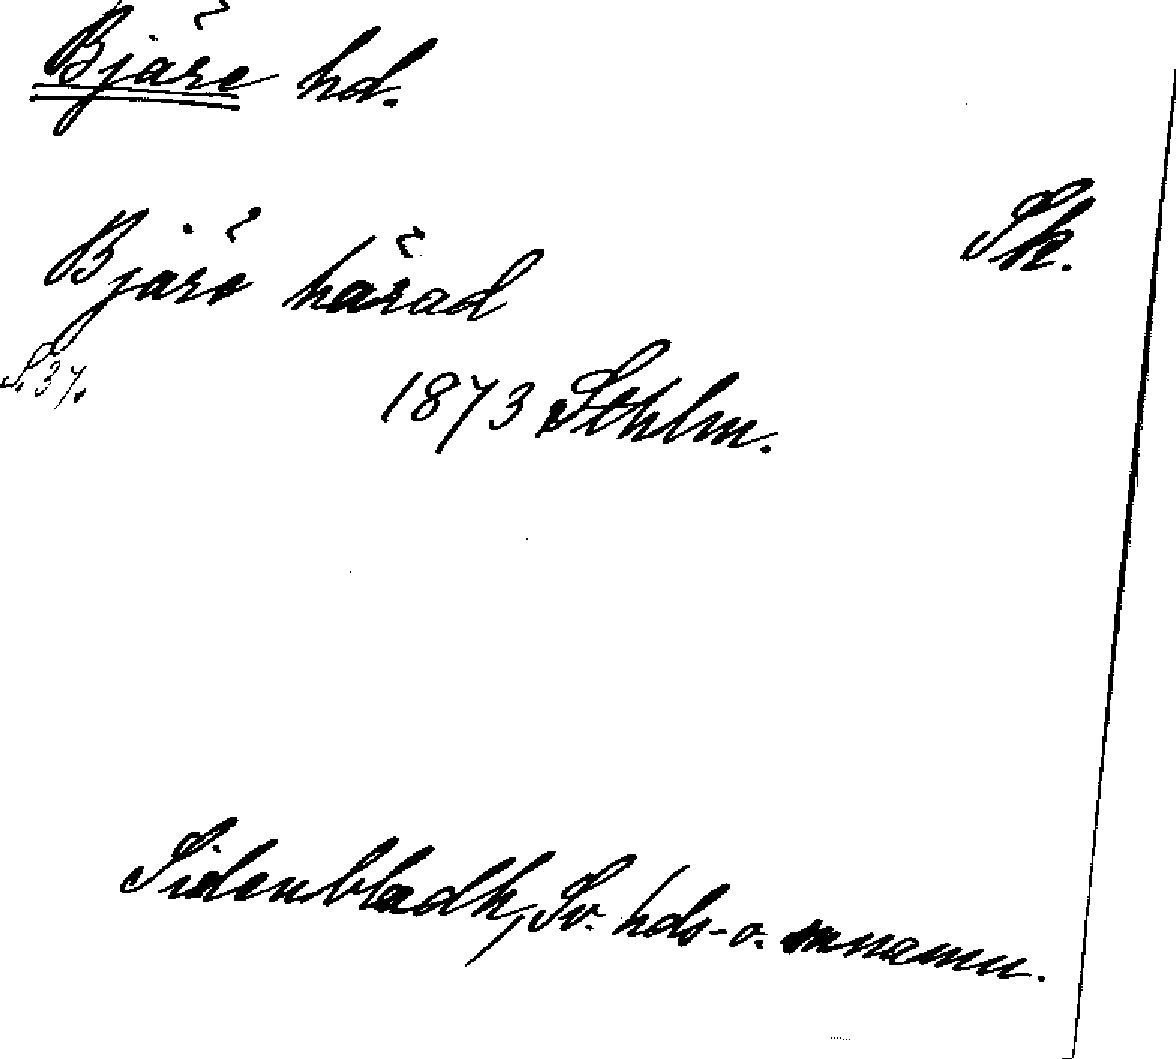 Bjäre hd.
Sk.
Bjäre härad
S. 37.
1873 Sthlm.
Sidenbladh, Sv. hds- o.